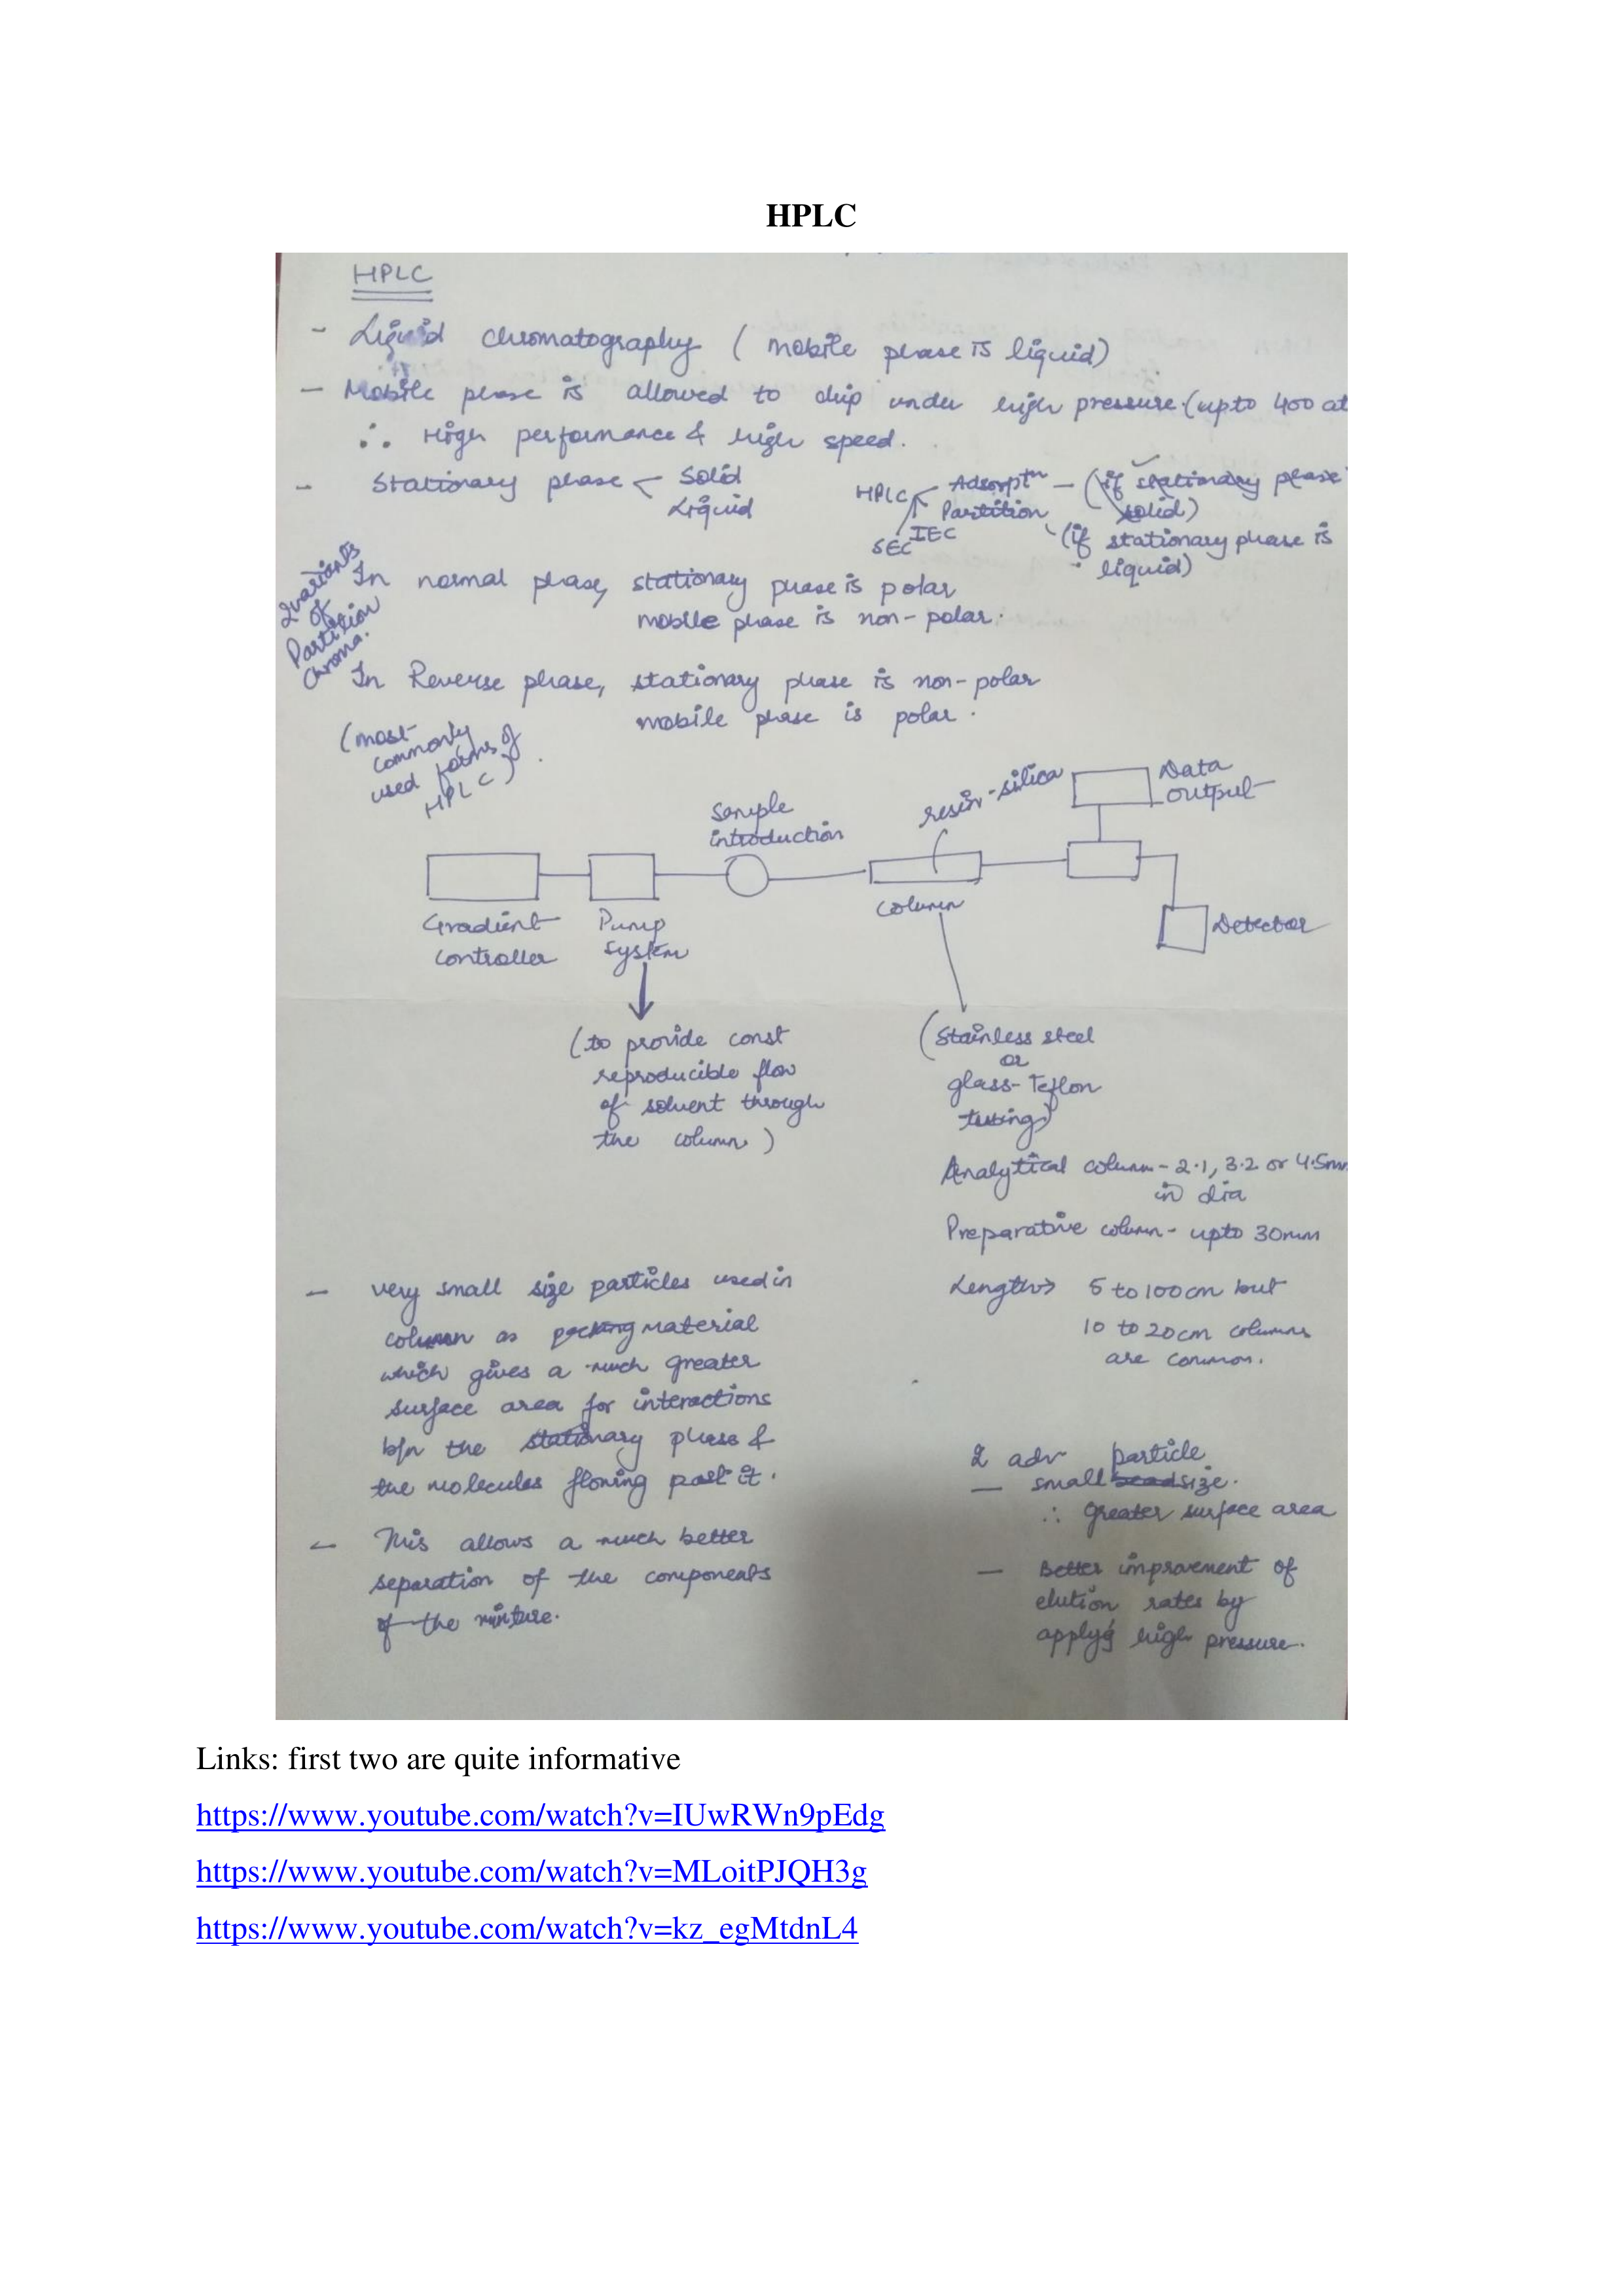 HPLC
HPLC
- Liquid chromatography ( mobile phase is liquid)
- Mobile phase is allowed to drip under high pressure. (upto 400 at
∴ High performance & high speed.
- Stationary phase < Solid
Liquid
HPLC < Adsorptⁿ - (if stationary phase
solid)
Partition
(if stationary phase is
liquid)
SEC IEC
2 variants
of
Partition
Chroma.
In normal phase, stationary phase is polar
mobile phase is non-polar.
In Reverse phase, stationary phase is non-polar
mobile phase is polar.
(most
commonly
used forms of
HPLC).
Sample
introduction
resin-silica
Data
output
Gradient
controller
Pump
system
column
Detector
(to provide const
reproducible flow
of solvent through
the column)
(Stainless steel
or
glass-Teflon
Analytical column - 2.1, 3.2 or 4.5m
in dia
Preparative column - upto 30mm
Length → 5 to 100cm but
10 to 20cm columns
are common.
- very small size particles used in
column as packing material
which gives a much greater
surface area for interactions
b/n the stationary phase &
the molecules flowing past it.
- This allows a much better
separation of the components
of the mixture.
2 adv
particle
- small bead size.
∴ greater surface area
- Better improvement of
elution rates by
applyg high pressure.
Links: first two are quite informative
https://www.youtube.com/watch?v=IUwRWn9pEdg
https://www.youtube.com/watch?v=MLoitPJQH3g
https://www.youtube.com/watch?v=kz_egMtdnL4